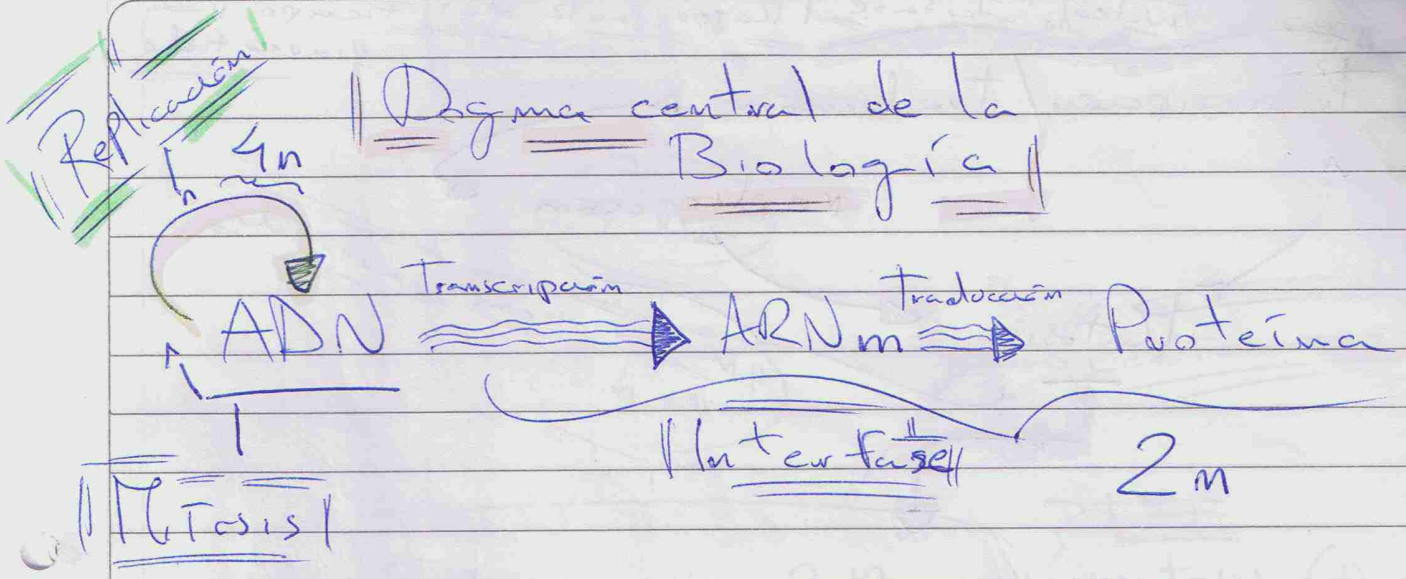 Replicación
Dogma central de la
Biología
4n
Transcripción
Traducción
ADN
ARNm
Proteína
Interfase
2n
Mitosis